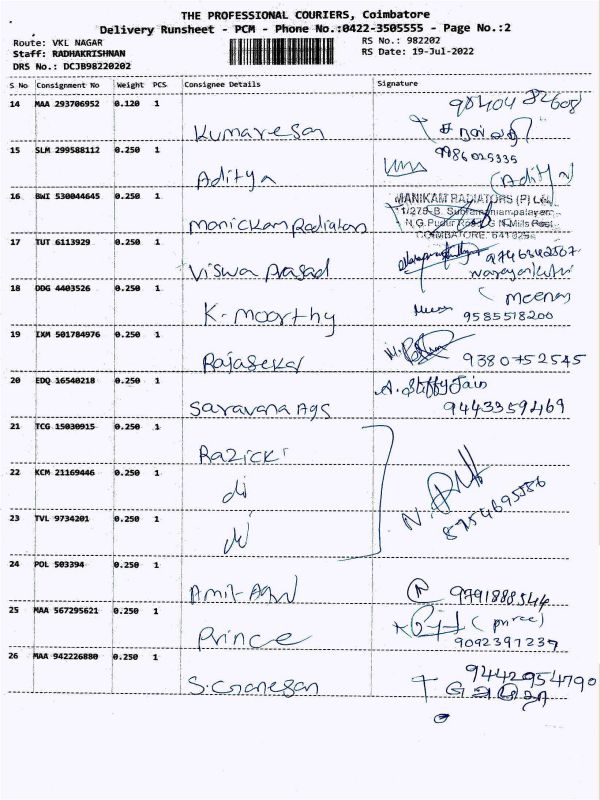 THE PROFESSIONAL COURIERS, Coimbatore
Delivery Runsheet - PCM - Phone No.:0422-3505555 - Page No.:2
Route: VKL NAGAR RS No.: 982202
Staff: RADHAKRISHNAN RS Date: 19-Jul-2022
DRS No.: DCJB98220202
S No Consignment No Weight PCS Consignee Details Signature
14 MAA 293706952 0.120 1
Kumaresan
15 SLM 299588112 0.250 1 9986025335
Aditya (Aditya)
16 BWI 530044645 0.250 1 MANIKAM RADIATORS (P) Ltd.,
monickam Radiators
COIMBATORE
17 TUT 6113929 0.250 1
Viswa Prasad
18 DDG 4403526 0.250 1 Meena
K. moorthy 9585518200
19 IXM 501784976 0.250 1
Rajasekar 9380752545
20 EDQ 16540218 0.250 1
Saravana Ags 9443359469
21 TCG 15030915 0.250 1
Razicki
22 KCM 21169446 0.250 1
do
23 TVL 9734201 0.250 1 8754695586
do
24 POL 503394 0.250 1
9791888544
25 MAA 567295621 0.250 1
Prince 9092397239
26 MAA 942226880 0.250 1 9442954790
S. Ganesan